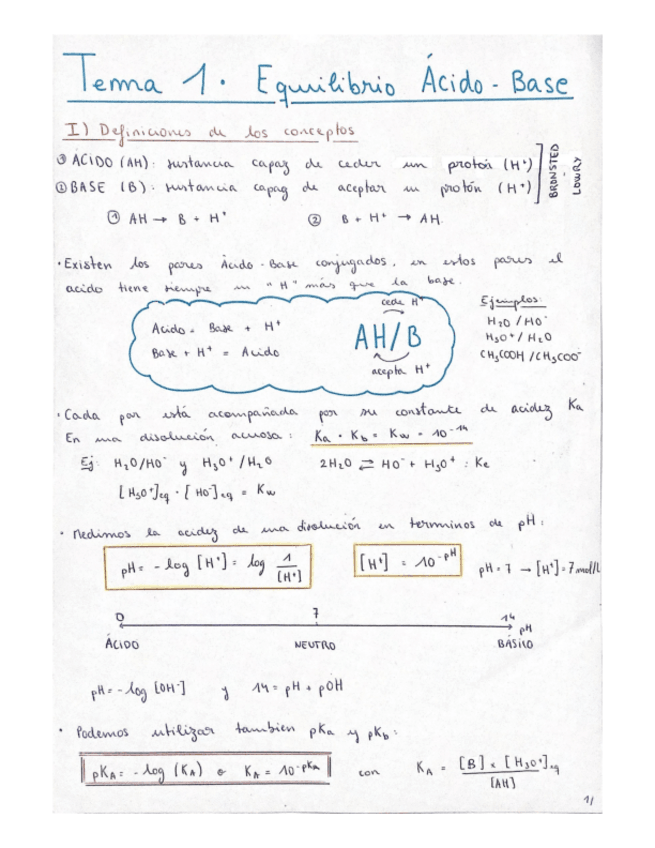 Tema 1. Equilibrio Ácido-Base
I) Definiciones de los conceptos
① ÁCIDO (AH): sustancia capaz de ceder un protón (H⁺)
② BASE (B): sustancia capaz de aceptar un protón (H⁺)
BRONSTED LOWRY
① AH → B + H⁺ ② B + H⁺ → AH.
· Existen los pares Ácido-Base conjugados, en estos pares el
acido tiene siempre un "H" más que la base.
Acido = Base + H⁺
Base + H⁺ = Acido
cede H⁺
AH/B
acepta H⁺
Ejemplos:
H₂O / HO⁻
H₃O⁺ / H₂O
CH₃COOH / CH₃COO⁻
· Cada par está acompañada por su constante de acidez Ka
En una disolución acuosa: Ka · Kb = Kw = 10⁻¹⁴
Ej: H₂O/HO⁻ y H₃O⁺/H₂O 2H₂O ⇄ HO⁻ + H₃O⁺ : Ke
[H₃O⁺]eq · [HO⁻]eq = Kw
· Medimos la acidez de una disolución en terminos de pH:
pH = - log [H⁺] = log 1/[H⁺] [H⁺] = 10⁻ᵖᴴ pH = 7 → [H⁺] = 7 mol/L
0 7 14
pH
ÁCIDO NEUTRO BÁSICO
pH = - log [OH⁻] y 14 = pH + pOH
· Podemos utilizar tambien pKa y pKb:
pKA = - log (KA) o KA = 10⁻ᵖᴷᵃ con KA = [B] × [H₃O⁺]eq / [AH]
1/